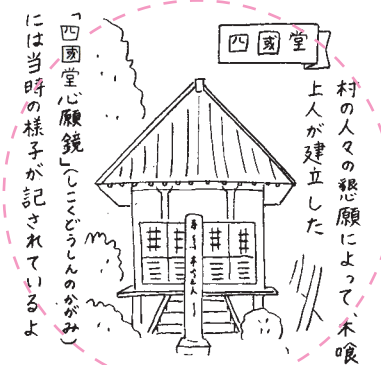 四國堂
村の人々の懇願によって、木喰
上人が建立した
「四國堂心願鏡」(しこくどうしんのかがみ)
には当時の様子が記されているよ